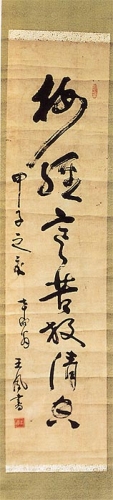 梅經寒苦放清香
甲子之春
王風書